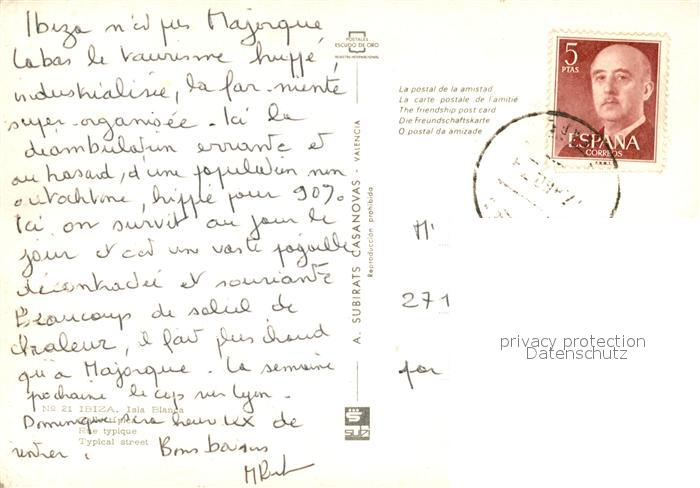 Ibiza n'est pas Majorque
Labas le tourisme huppé,
industrialisée, la far-niente
super-organisée. Ici la
déambulation errante et
au hasard, d'une population non
autochtone, hippie pour 90%
Ici on survit au jour le
jour et c'est un vaste
décontractée et souriante
Beaucoup de soleil de
chaleur, il fait plus chaud
qu'à Majorque. La semaine
prochaine le cap vers Lyon.
Dominique sera heureux de
rentrer! Bons baisers
Nº 21 IBIZA. Isla Blanca
Rue typique
Typical street
POSTALES
ESCUDO DE ORO
REGISTRO INTERNACIONAL
A. SUBIRATS CASANOVAS - VALENCIA
Reproducción prohibida
subi
La postal de la amistad
La carte postale de l'amitié
The friendship post card
Die Freundschaftskarte
O postal da amizade
5
PTAS
ESPAÑA
CORREOS
F.N.M.T.
M'
271
par
privacy protection
Datenschutz